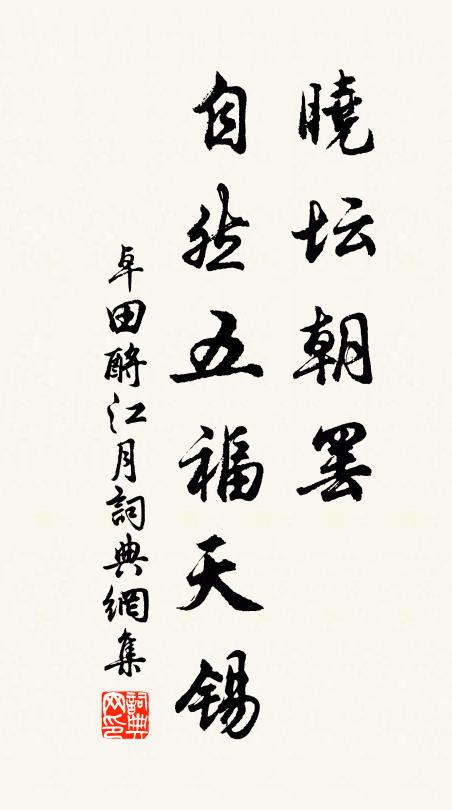 曉坛朝罢
自然五福天锡
卓田酹江月詞典網集
詞典网印